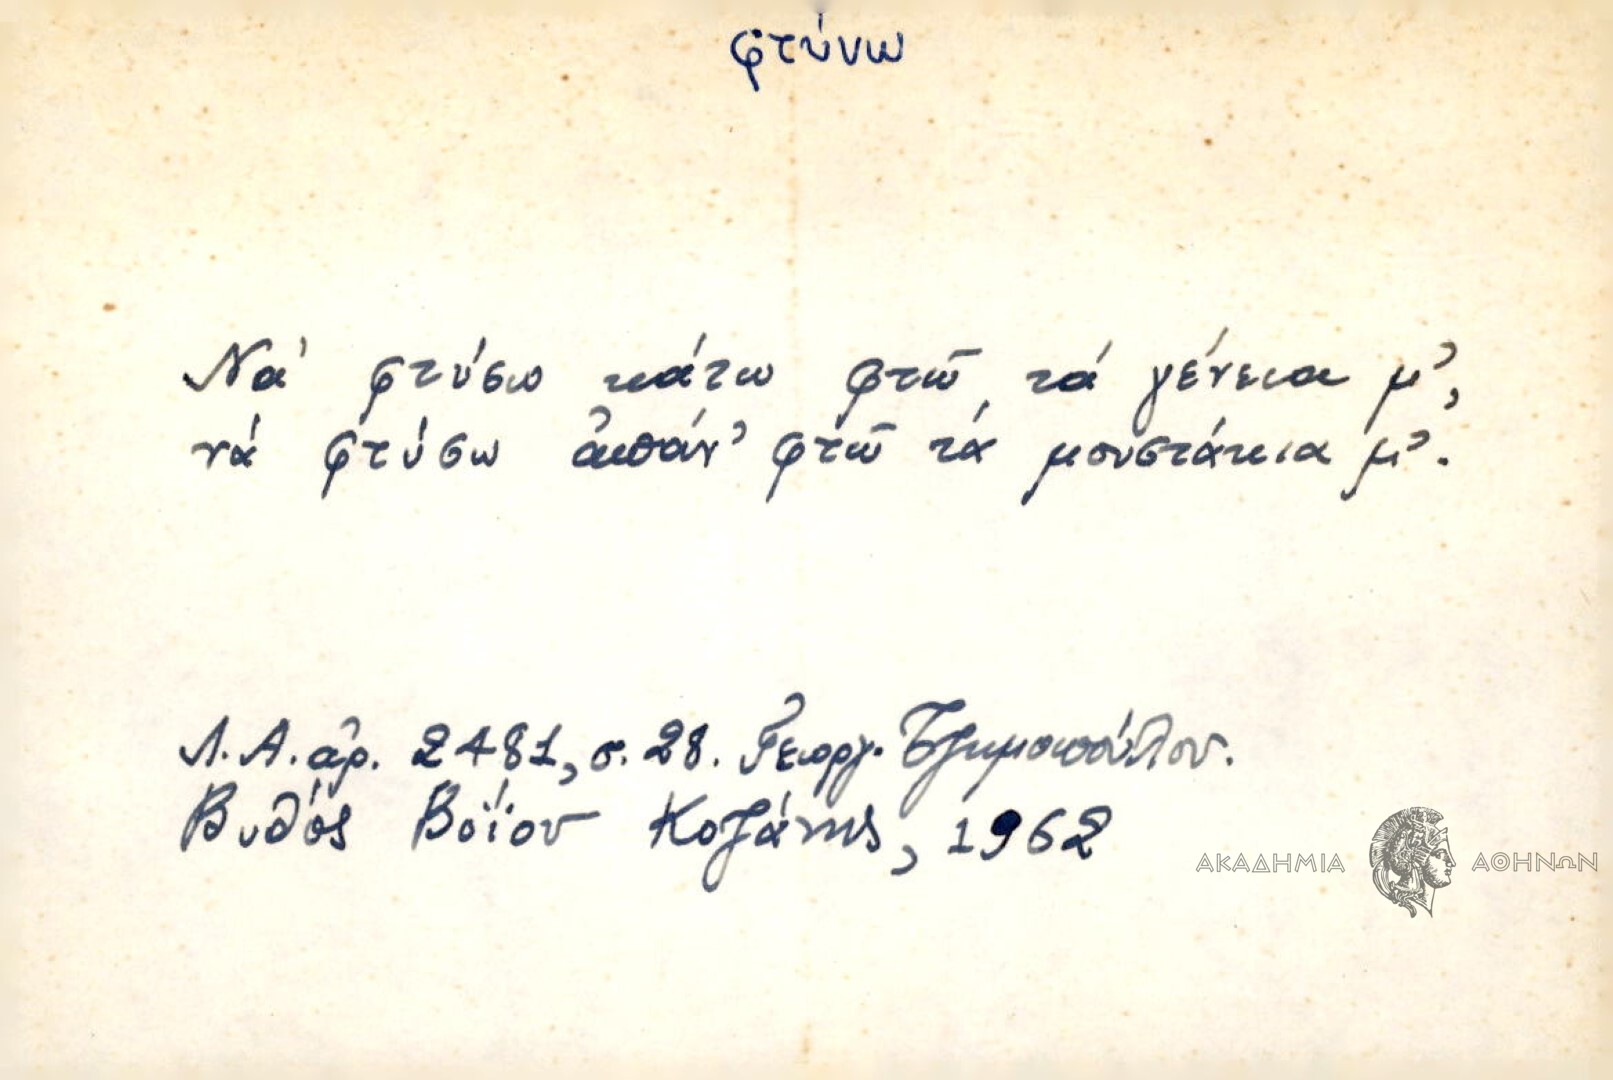 φτύνω
Νά φτύσω κάτω φτῶ τά γένεια μ',
νά φτύσω ἀπάν' φτῶ τά μουστάκια μ'.
Λ.Α. ἀρ. 2481, σ. 28. Γεωργ. Τζημοπούλου.
Βυθός Βοΐου Κοζάνης, 1962
ΑΚΑΔΗΜΙΑ ΑΘΗΝΩΝ